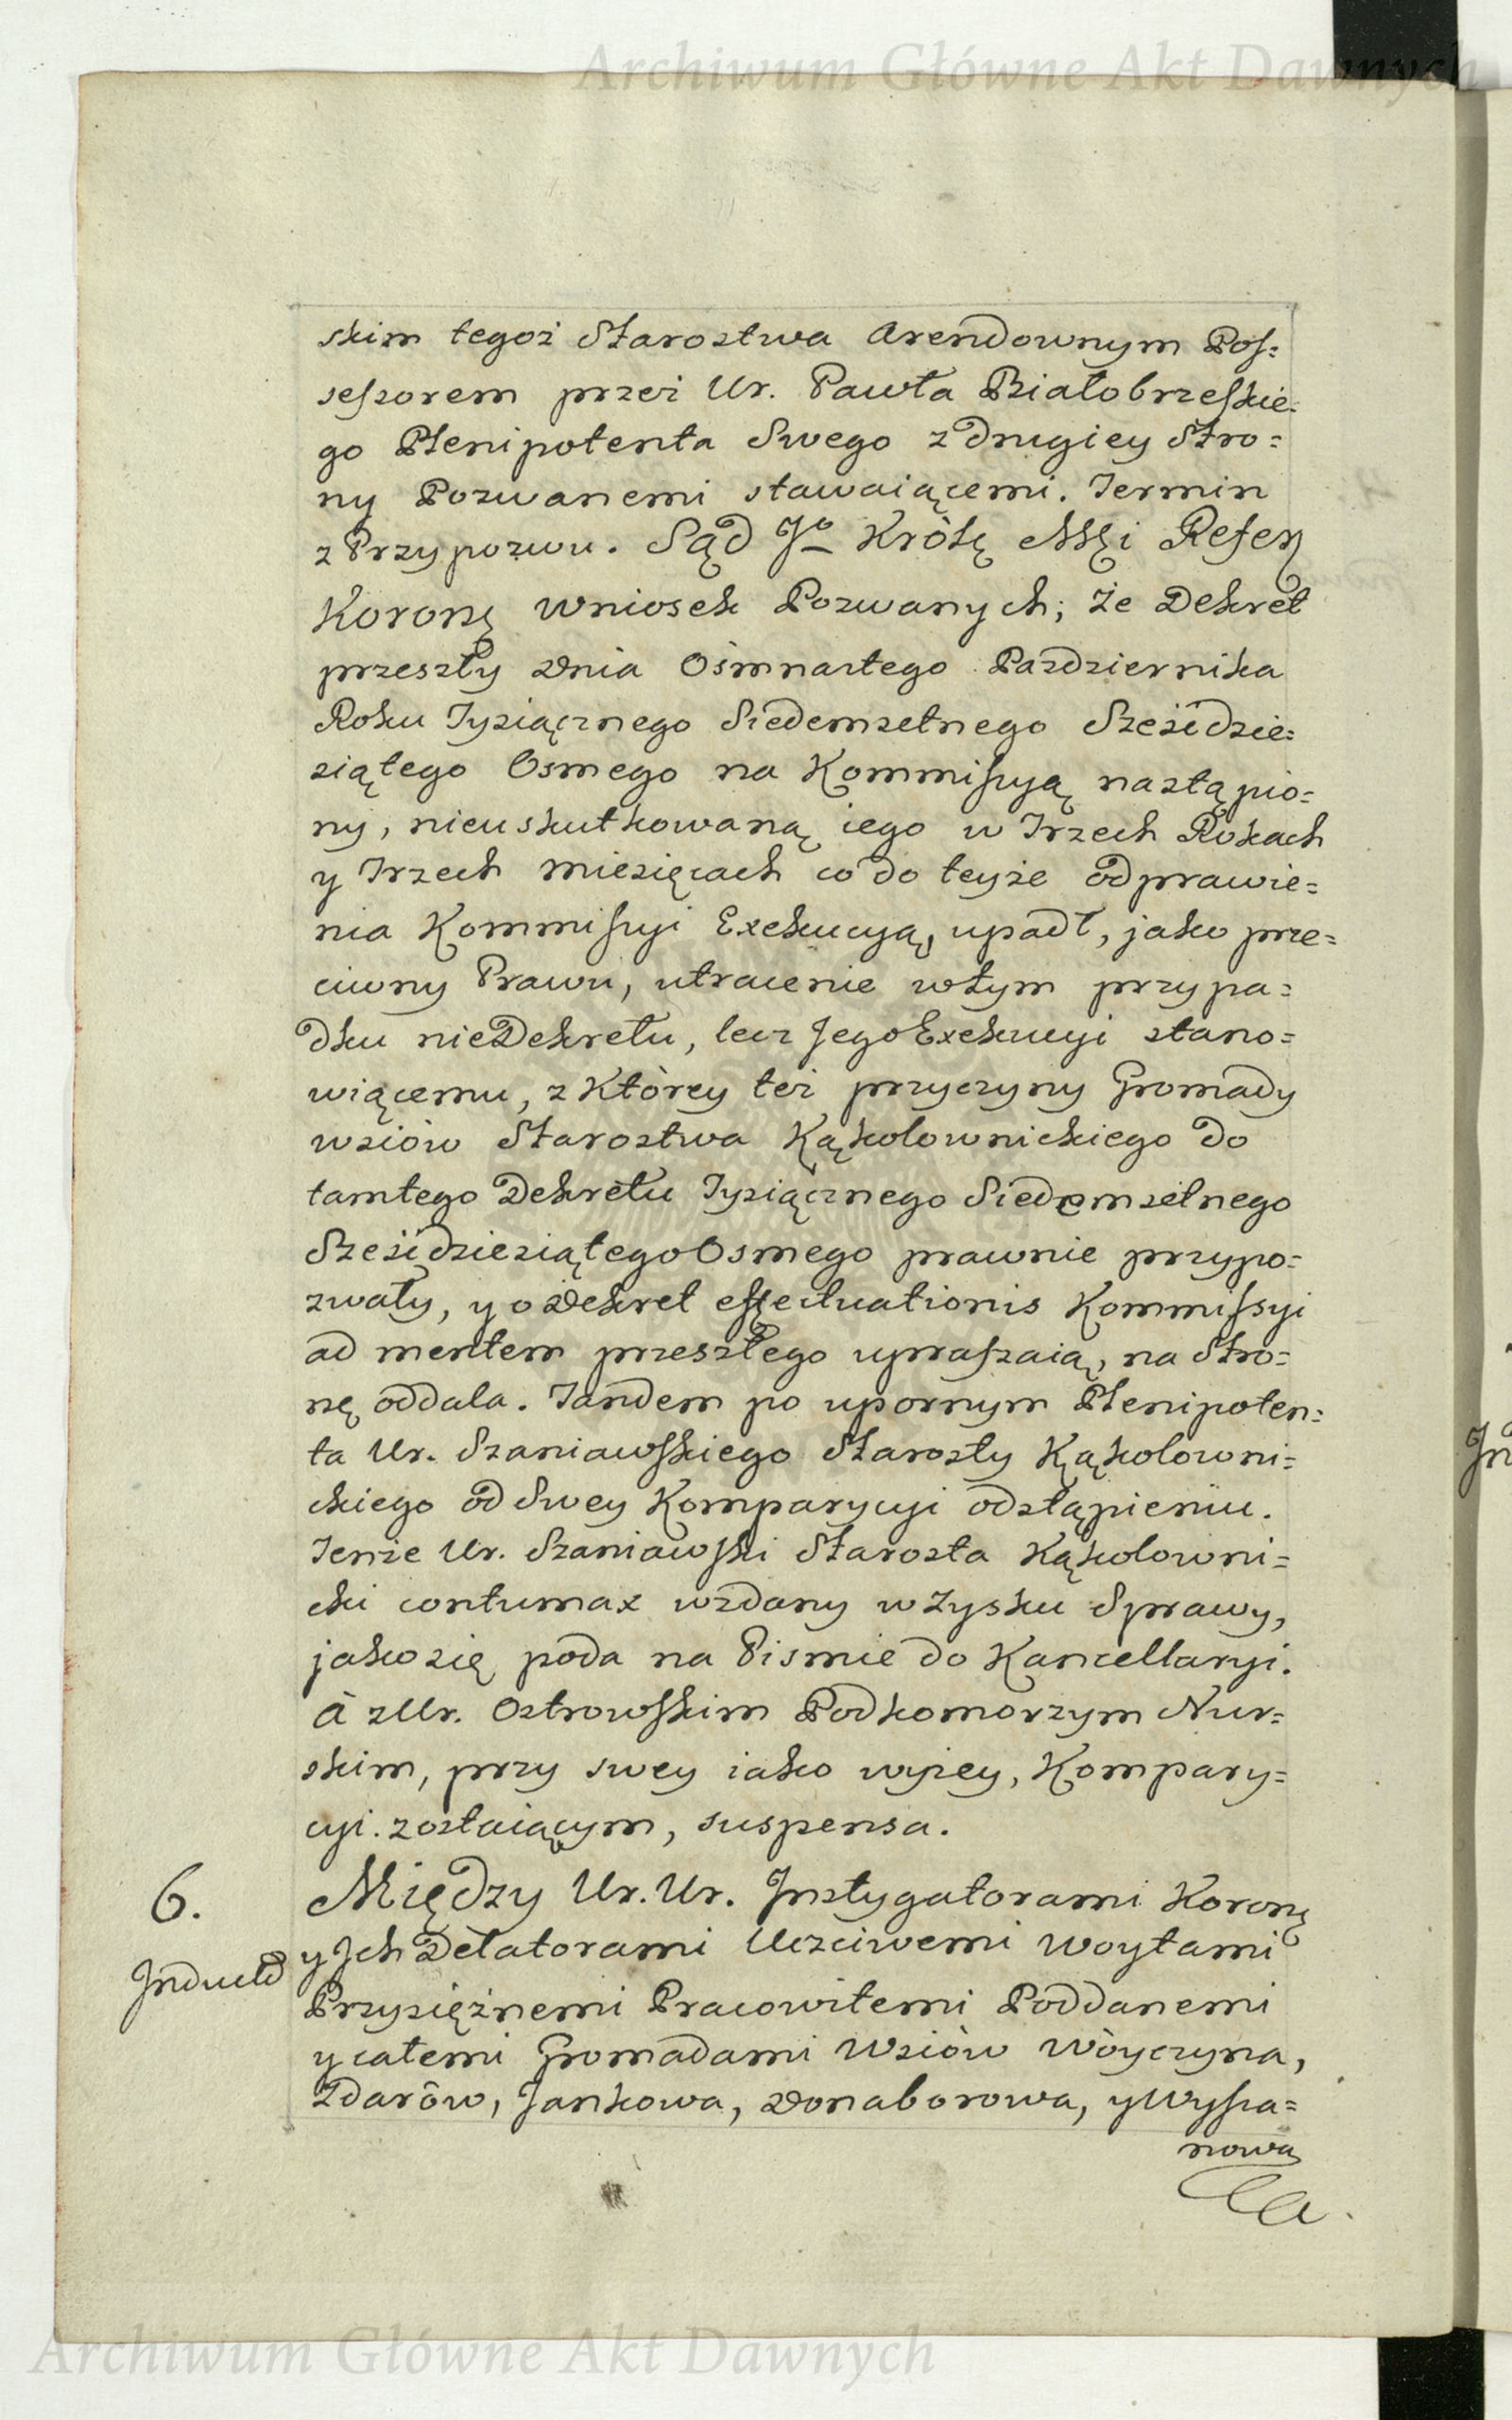 Archiwum Główne Akt Dawnych
skim tegoż Starostwa Arendownym Pos=
sessorem przez Ur. Pawła Białobrzeskie=
go Plenipotenta Swego z drugiey Stro=
ny Pozwanemi stawaiącemi. Termin
z Przypozwu. Sąd Jo Królę Mśći Refer
Koronę wniosek Pozwanych; że Dekret
przeszły Dnia Ośmnastego Pazdziernika
Roku Tysiącznego Siedemsetnego Sześćdzie=
siątego Osmego na Kommissyą nastąpio=
ny, nieuskutkowaną iego w Trzech Rokach
y Trzech miesięcach co do teyże odprawie=
nia Kommissyi Exekucyą, upadł, jako prze=
ciwny Prawu, utracenie w tym przypa=
dku nie Dekretu, lecz Jego Exekucyi stano=
wiącemu, z Którey też przyczyny Gromady
wsiów Starostwa Kąkolownickiego do
tamtego Dekretu Tysiącznego Siedemsetnego
Sześćdziesiątego Osmego prawnie przypo=
zwały, y o Dekret effectuationis Kommissyi
ad mentem przeszłego upraszaią, na Stro=
nę oddala. Tandem po upornym Plenipoten=
ta Ur. Szaniawskiego Starosty Kąkolowni=
ckiego od Swey Komparycyi odstąpieniu.
Tenże Ur. Szaniawski Starosta Kąkolowni=
cki contumax wzdany w Zysku Sprawy,
jako się poda na Pismie do Kancellaryi.
A z Ur. Ostrowskim Podkomorzym Nur=
skim, przy swey iako wyżey, Kompary=
cyi zostaiącym, suspensa.
6. Między Ur. Ur. Instygatorami Koronę
Inductd y Jch Delatorami Uczciwemi Woytami
Przysiężnemi Pracowitemi Poddanemi
y całemi Gromadami Wsiów Wóyczyna,
Zdarów, Jankowa, Donaborowa, y Wyssa=
nowa
Archiwum Główne Akt Dawnych